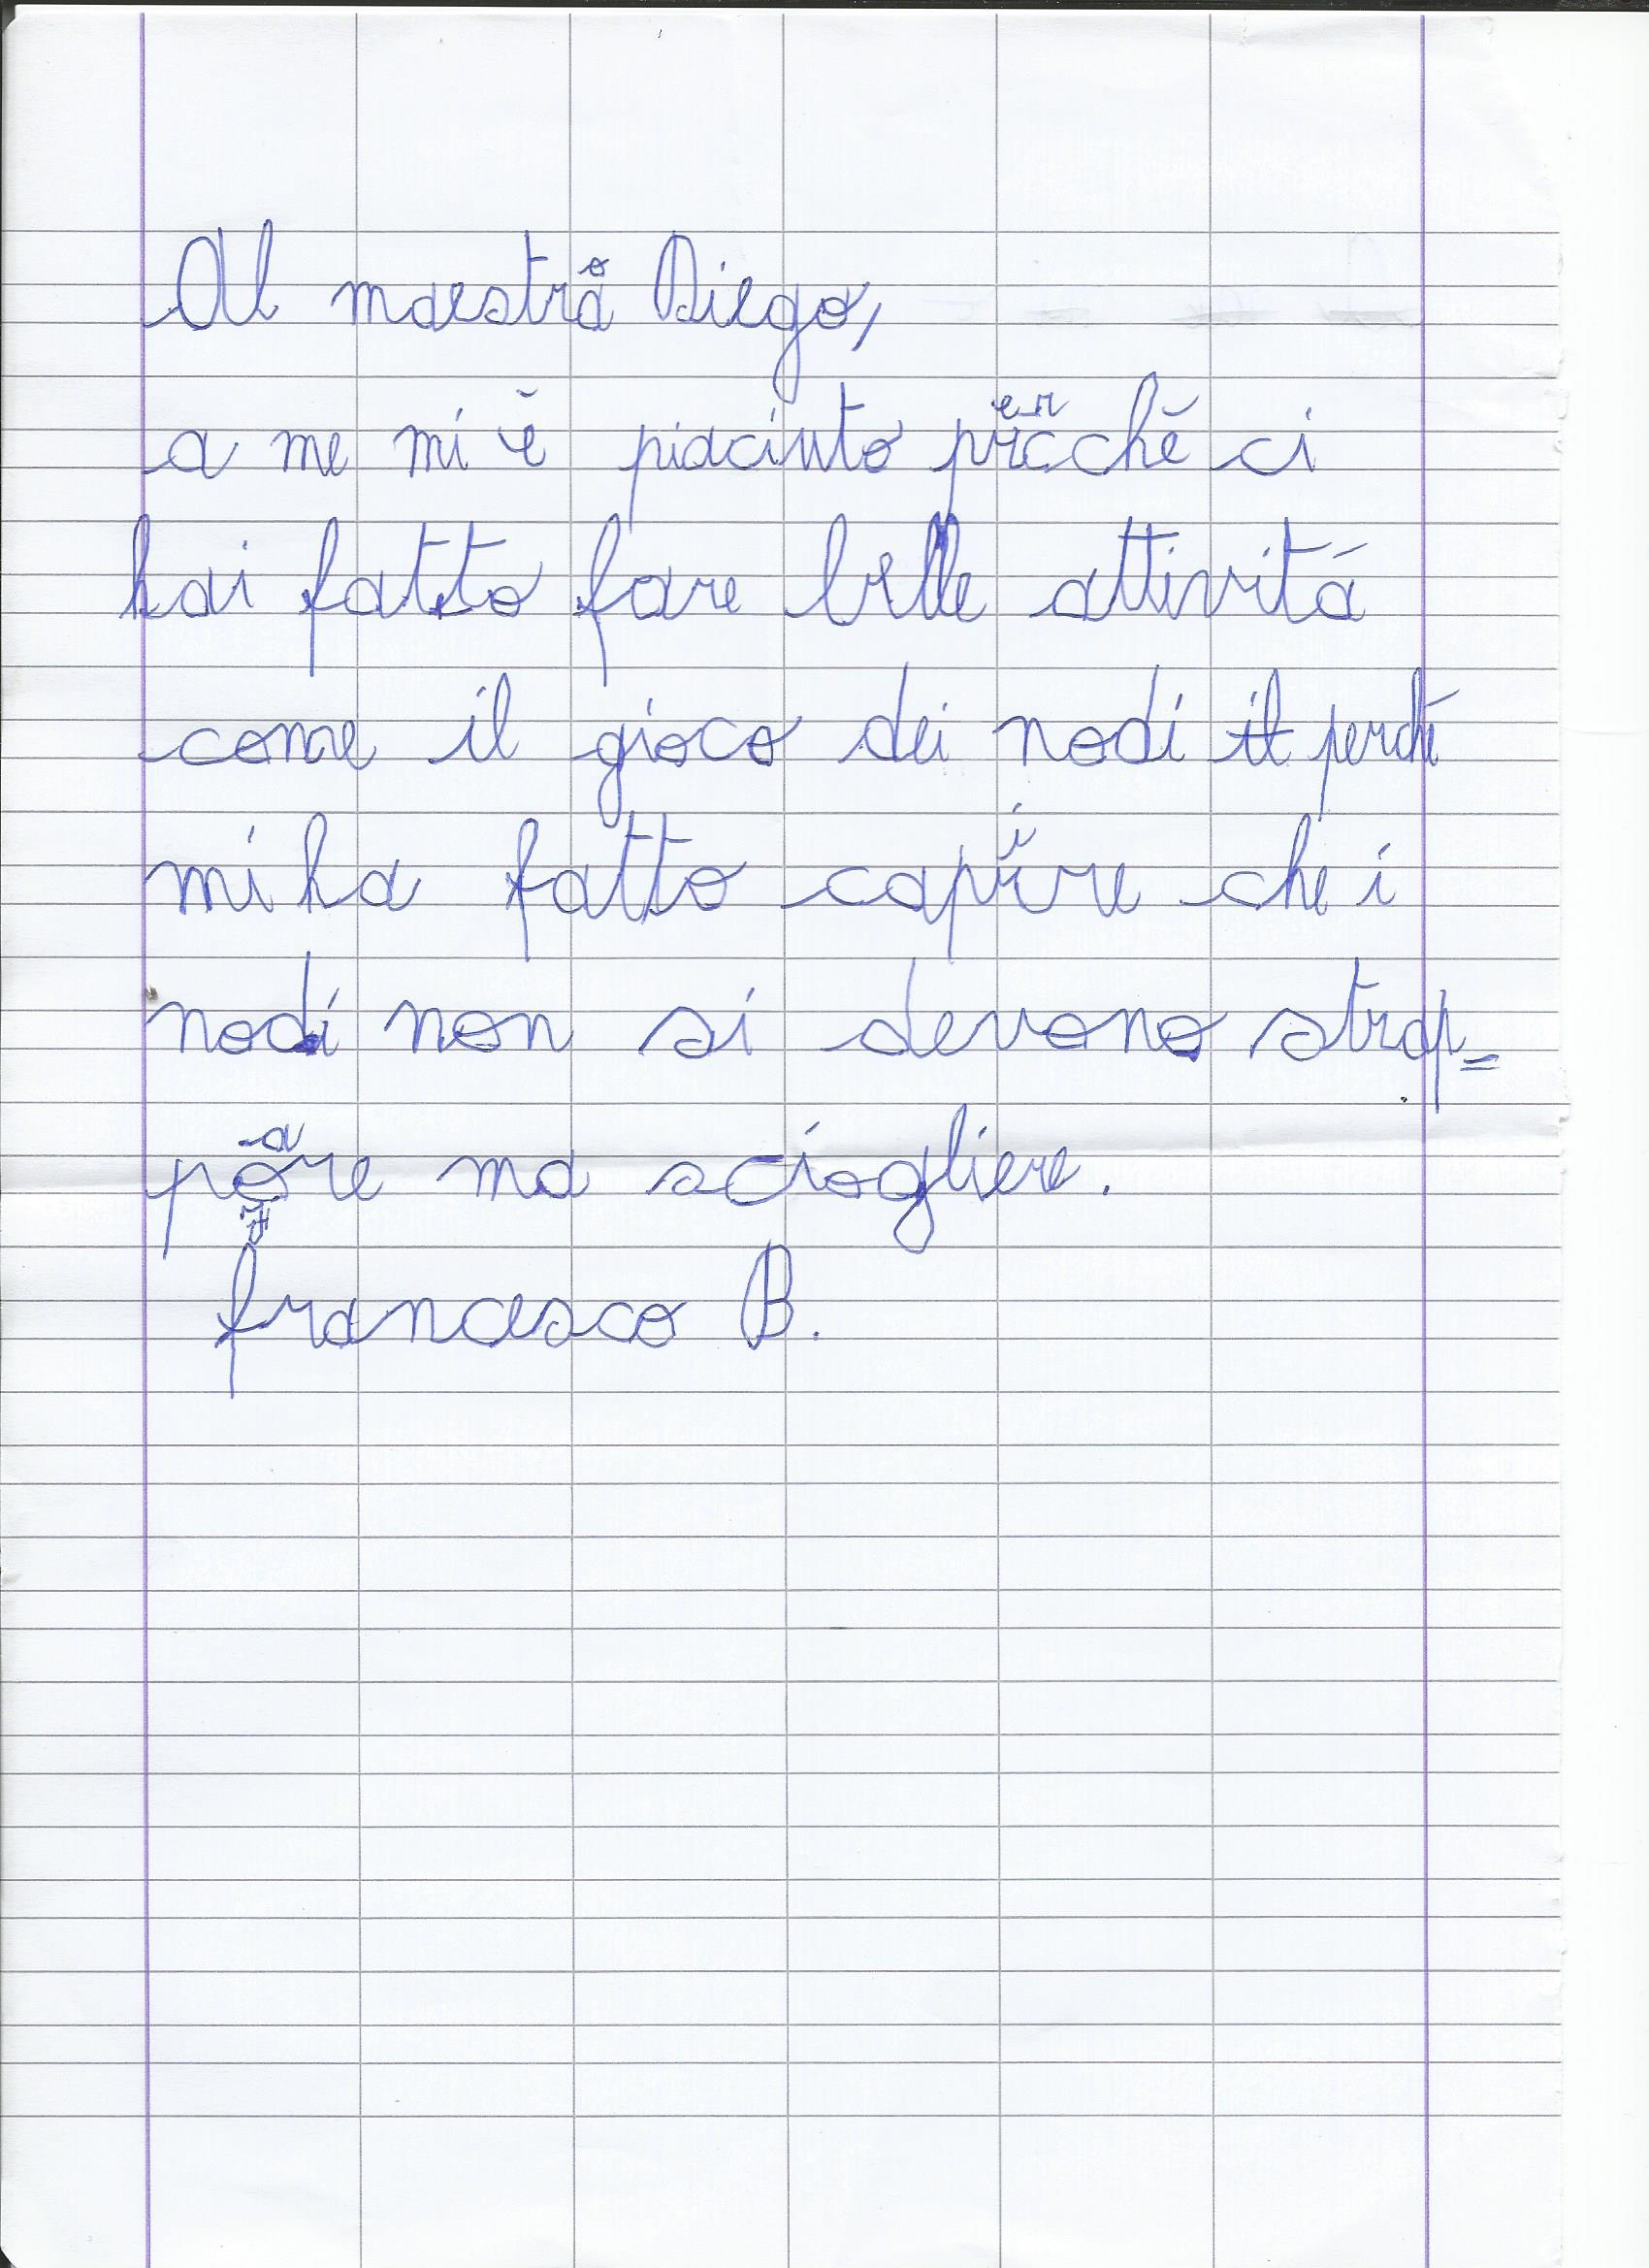 Al maestro Diego,
a me mi è piaciuto perchè ci
hai fatto fare belle attività
come il gioco dei nodi il perchè
mi ha fatto capire che i
nodi non si devono strap=
pare ma sciogliere.
francesco B.